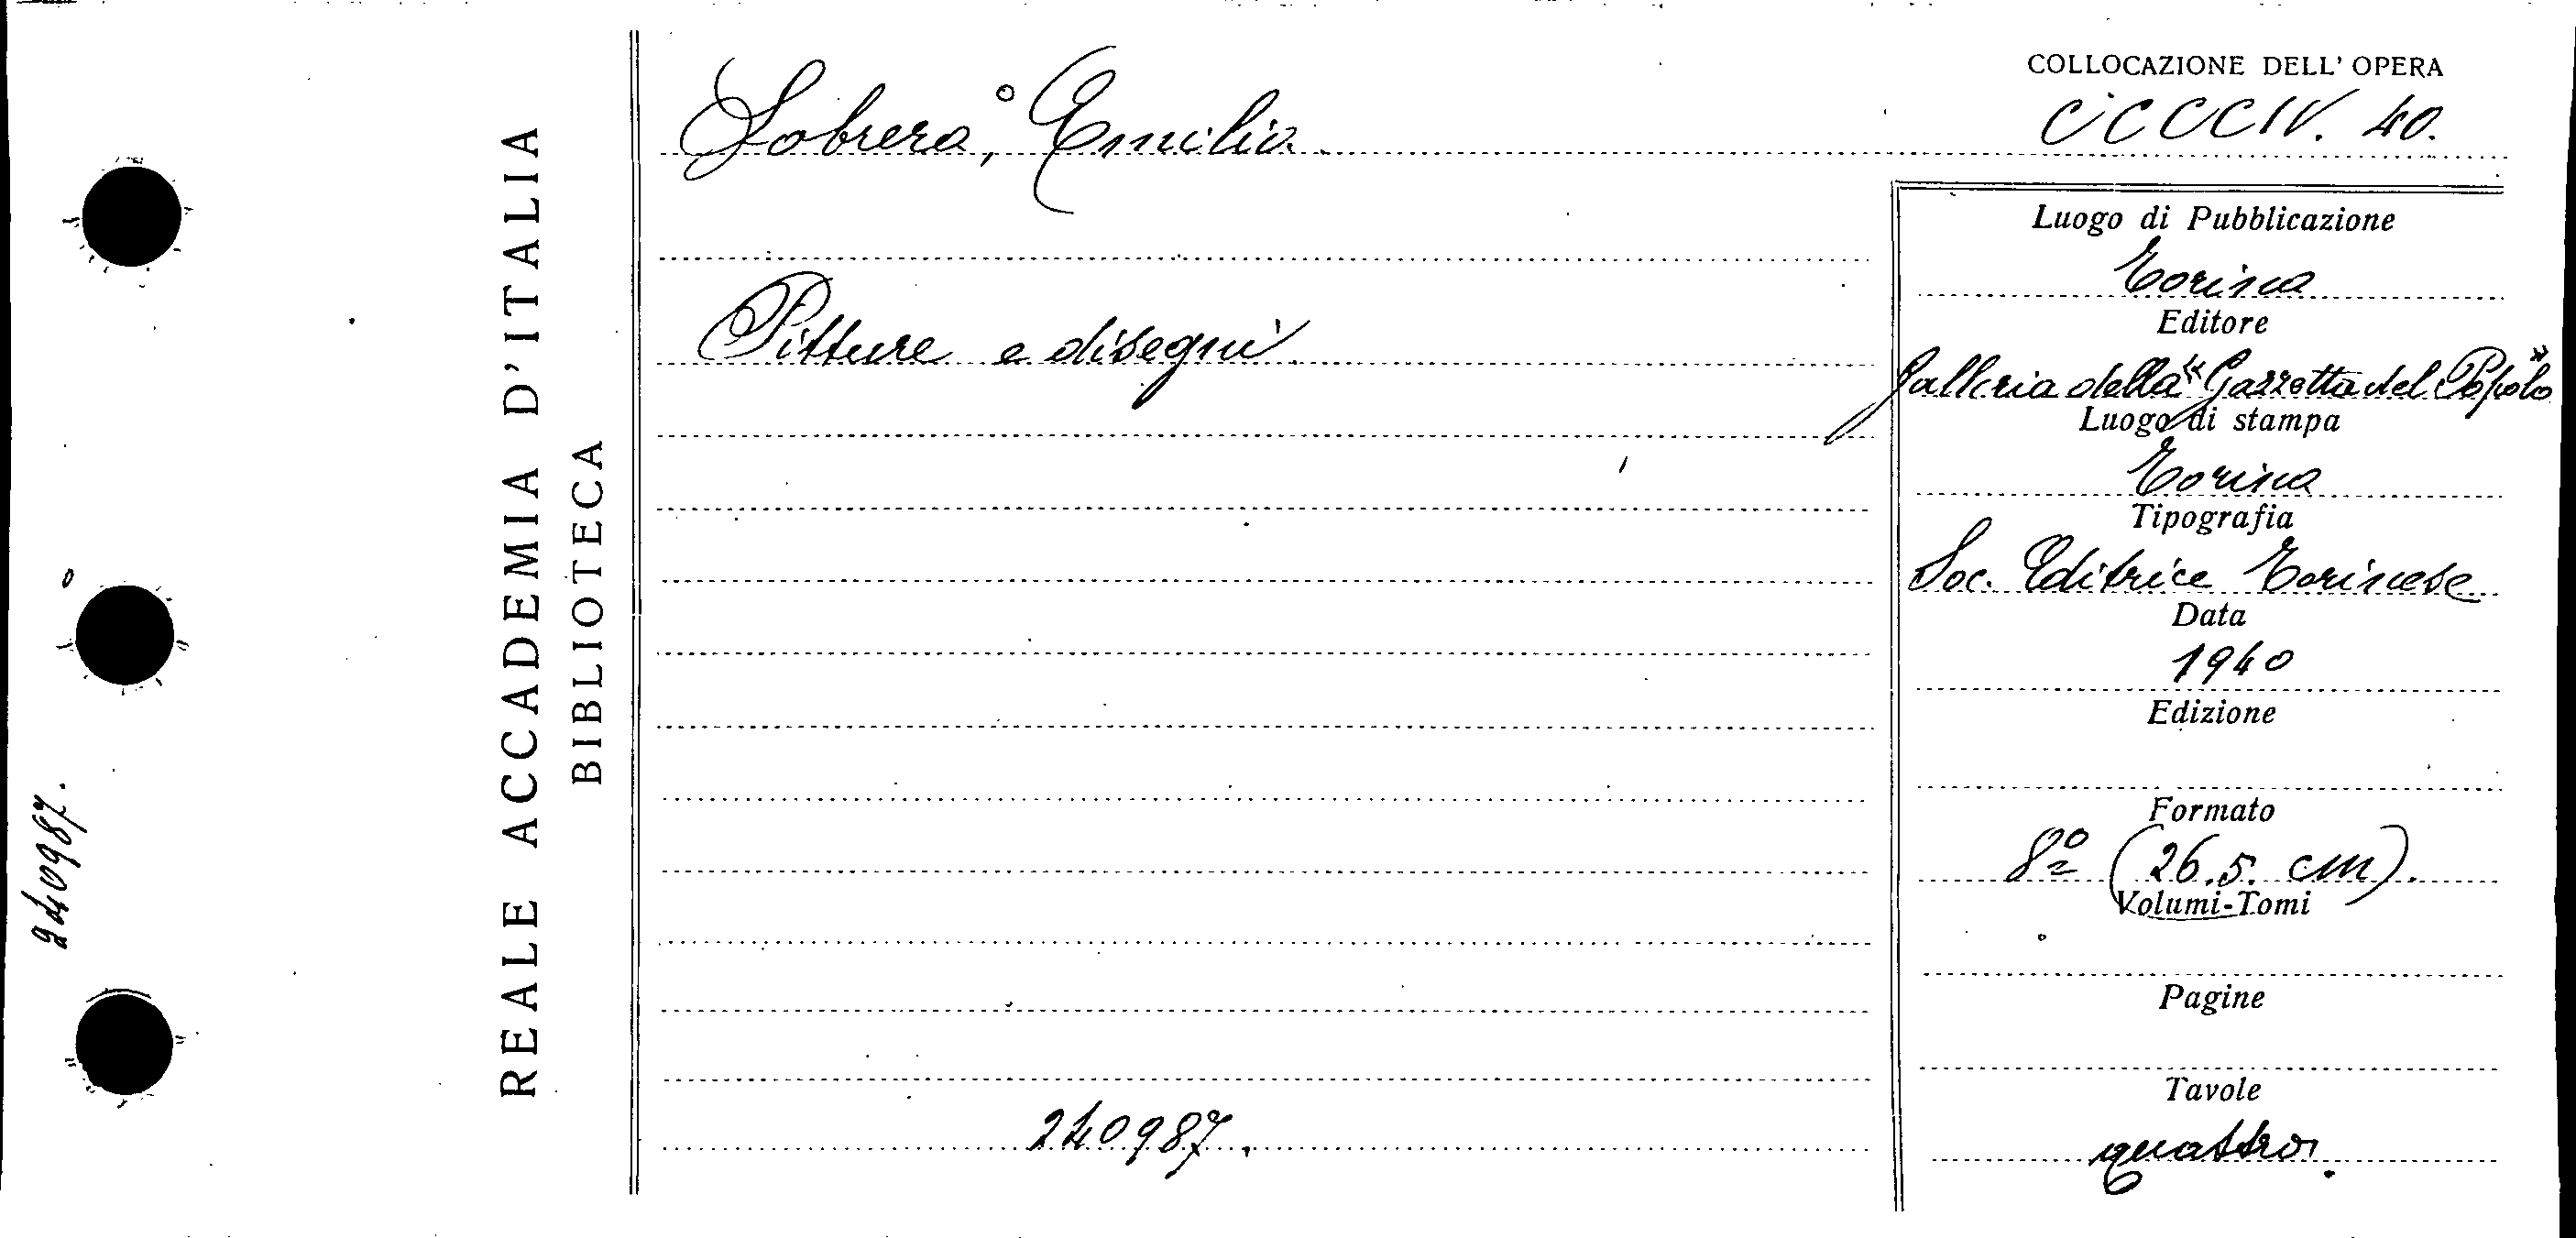 COLLOCAZIONE DELL' OPERA
Sobrero, Emilio.
CCCCIV. 40.
Pitture e disegni.
240987.
Luogo di Pubblicazione
Torino
Editore
Galleria della "Gazzetta del Popolo"
Luogo di stampa
Torino
Tipografia
Soc. Editrice Torinese
Data
1940
Edizione
Formato
8º (26.5. cm).
Volumi-Tomi
Pagine
Tavole
quattro.
REALE ACCADEMIA D'ITALIA
BIBLIOTECA
240987.